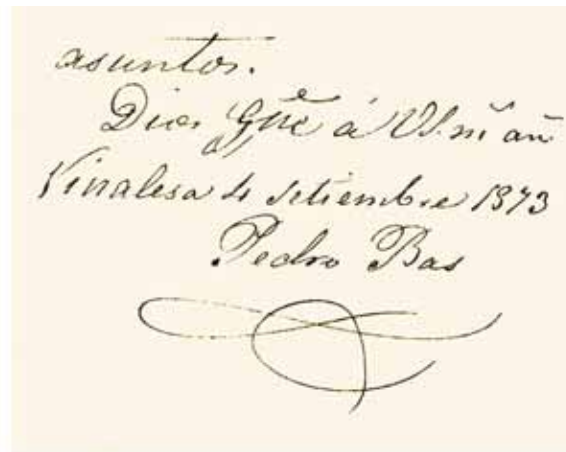 asuntos.
Dios gũe á VS. m̃ añ
Vinalesa 4 Setiembre 1873
Pedro Bas